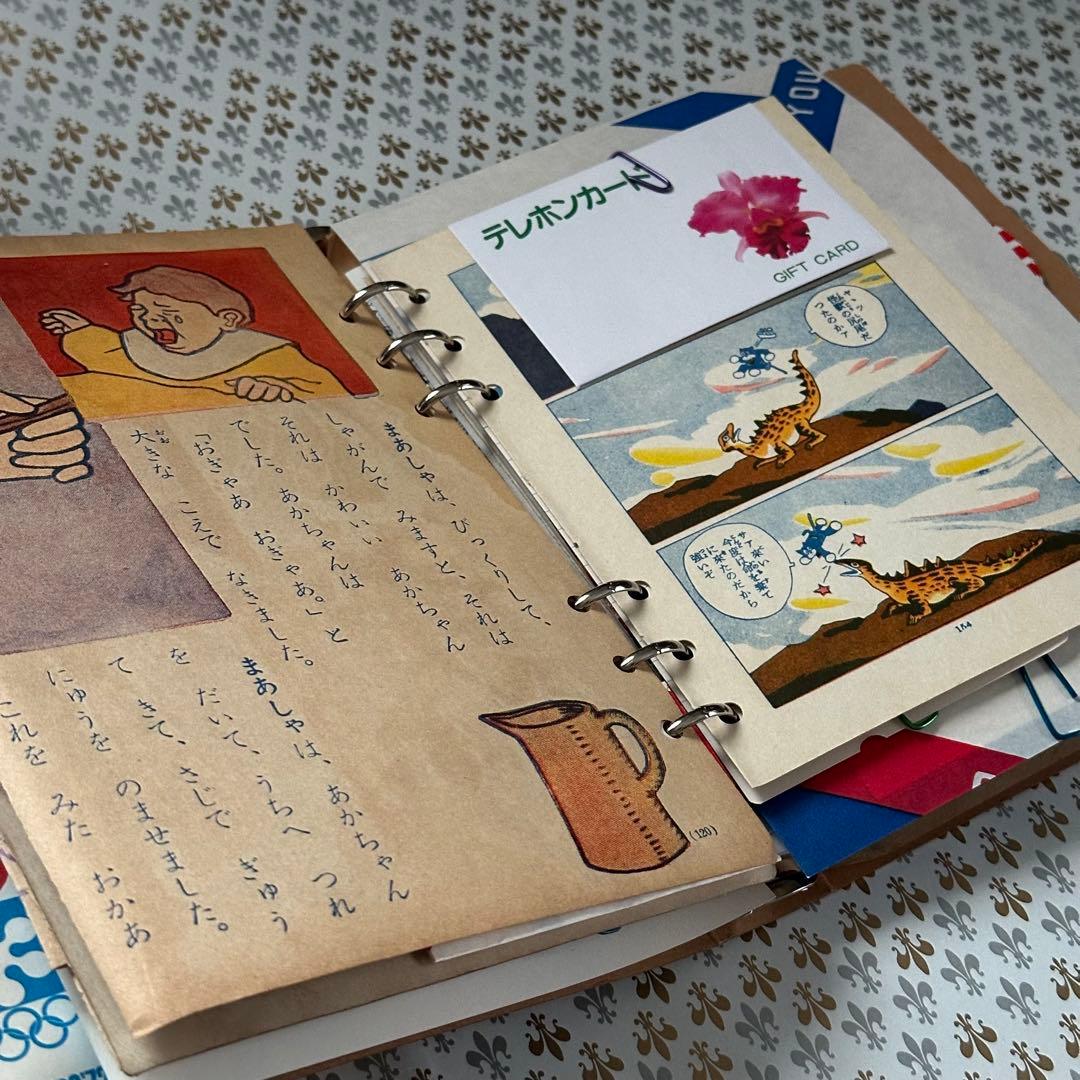 まあしゃは、びっくりして、
しゃがんで みますと、それは
それは かわいい あかちゃん
でした。あかちゃんは
「おぎゃあ おぎゃあ。」と
大きな こえで なきました。
まあしゃは、あかちゃん
を だいて、うちへ つれ
て きて、さじで ぎゅう
にゅうを のませました。
これを みた おかあ
(120)
YOU
テレホンカード
GIFT CARD
の尻尾だ
つたのか?
サア来い
今度は命を棄て
に来たのだから
強いぞ